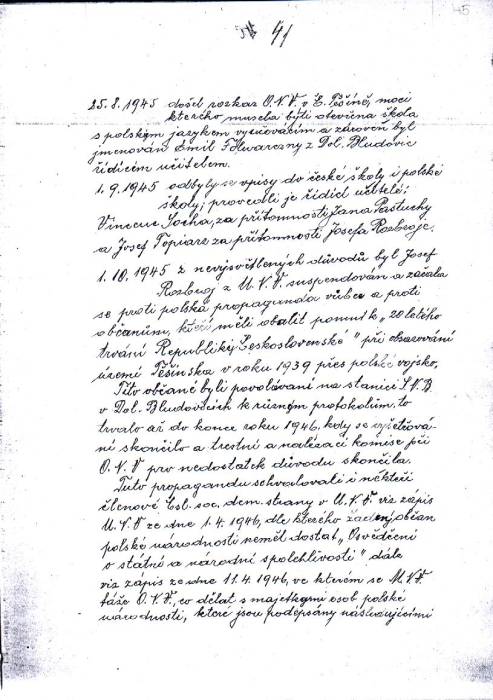 41
25.8.1945 došel rozkaz O.N.V. v Č. Těšíně, mocí
kterého musela býti otevřena škola
s polským jazykem vyučovacím a zároveň byl
jmenován Emil Folwarczny z Dol. Bludovic
řídícím učitelem.
1.9.1945 odbyly se vpisy do české školy i polské
školy; provedli je řídící učitelé;
Vincenc Socha, za přítomnosti Jana Pastuchy
a Josef Topiarz za přítomnosti Josefa Rozbroje.
1.10.1945 z nevysvětlených důvodů byl Josef
Rozbroj z M.N.V. suspendován a začala
se proti polská propaganda vůbec a proti
občanům, kteří měli obalit pomník „20 letého
trvání Republiky Československé" při obsazování
území Těšínska v roku 1939 přes polské vojsko,
Tito občané byli povolávaní na stanice S.N.B.
v Dol. Bludovicích k různým protokolům, to
trvalo až do konce roku 1946, kdy se vyšetřová-
ní skončilo a trestní a nalézací komise při
O.N.V pro nedostatek důvodu skončila.
Tuto propagandu schvalovali i někteří
členové čsl. soc. dem. strany v M.N.V. viz zápis
M.N.V ze dne 1.4.1946, dle kterého žádný občan
polské národnosti neměl dostat „Osvědčení
o státní a národní spolehlivosti" dále
viz zápis ze dne 11.4.1946, ve kterém se M.N.V.
táže O.N.V., co dělat s majetkami osob polské
národnosti, které jsou podepsány následujícími